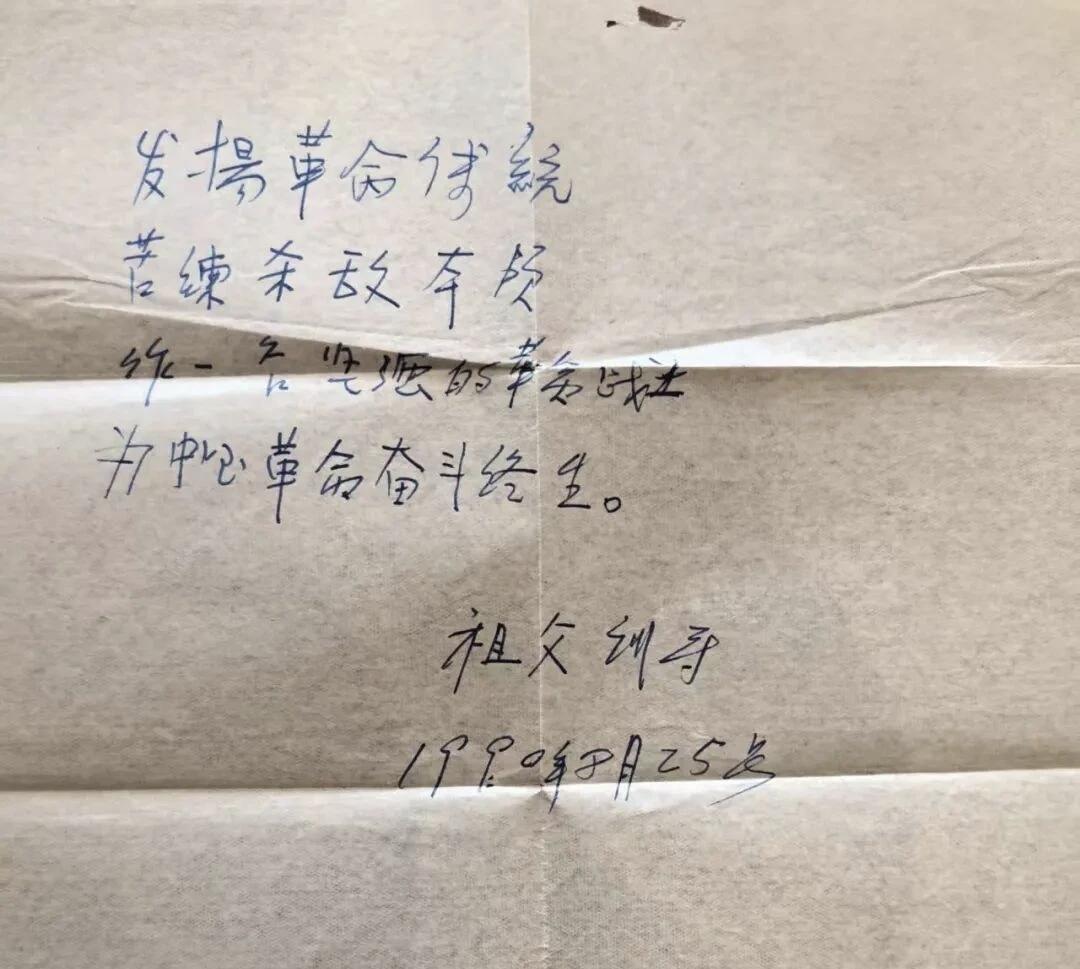 发揚革命传統
苦練杀敌本领
作一名坚强的革命战士
为中国革命奋斗终生。
祖父训示
1990年8月25号